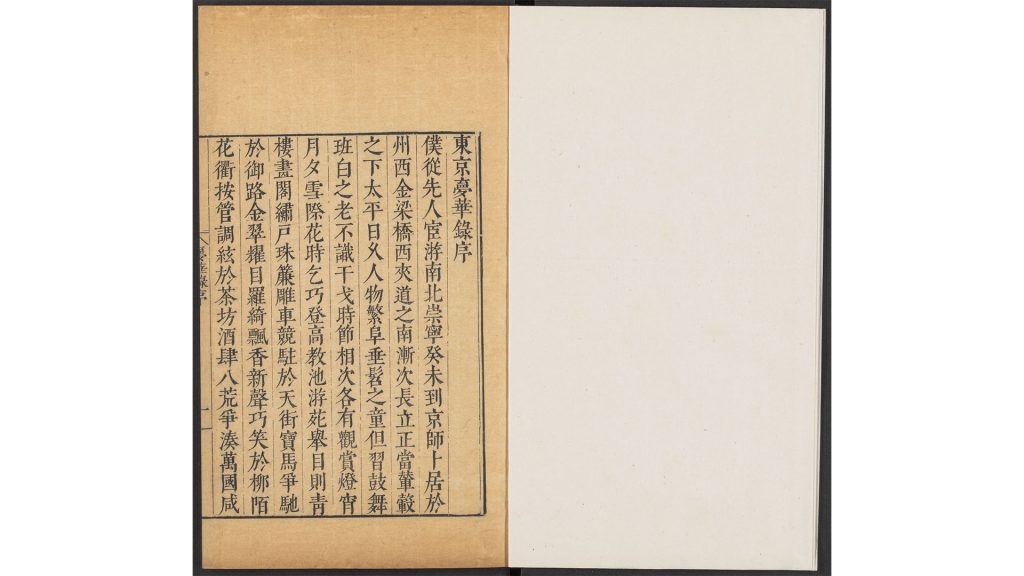 東京夣華錄序
僕從先人宦游南北崇寧癸未到京師卜居於
州西金梁橋西夾道之南漸次長立正當輦轂
之下太平日久人物繁阜垂髫之童但習鼓舞
班白之老不識干戈時節相次各有觀賞燈宵
月夕雪際花時乞巧登高教池游苑舉目則青
樓畫閣繡戶珠簾雕車競駐於天街寶馬爭馳
於御路金翠耀目羅綺飄香新聲巧笑於柳陌
花衢按管調絃於茶坊酒肆八荒爭湊萬國咸
夣華錄序
一